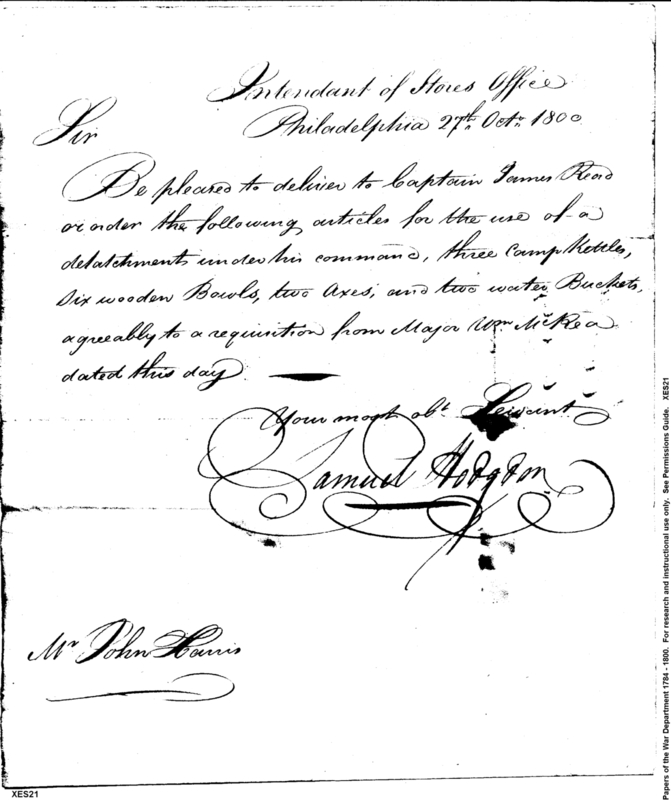 Intendant of Stores Office
Philadelphia 27th Octr 1800
Sir
Be pleased to deliver to Captain James Read
or order the following articles for the use of a
detatchments under his command, three Camp Kettles,
Six wooden Bowls, two Axes, and two water Buckets,
agreeably to a requisition from Major Wm McRea
dated this day.
Your most obt Servant
Samuel Hodgdon
Mr John Harris
XES21
Papers of the War Department 1784 - 1800. For research and instructional use only. See Permissions Guide. XES21